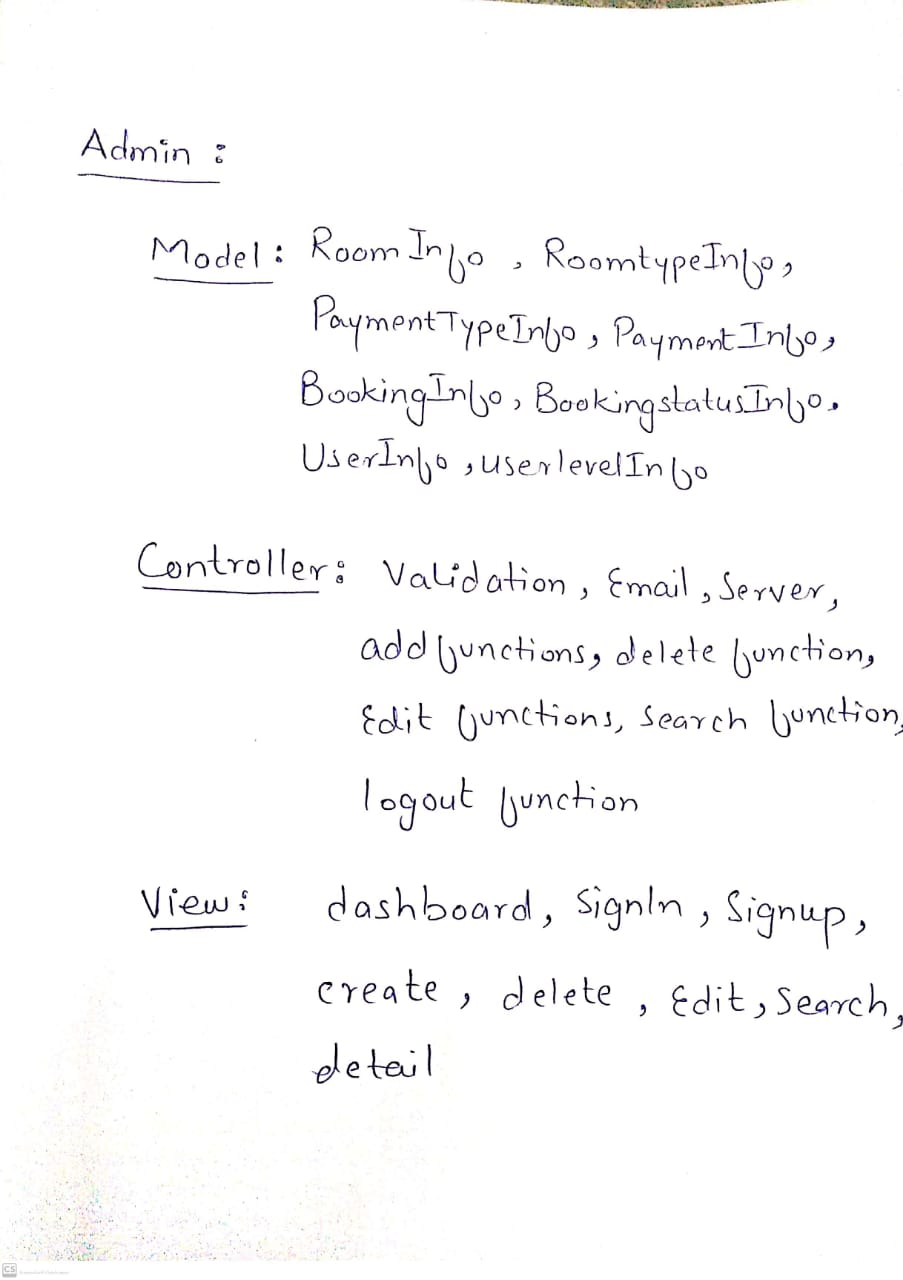 Admin :
Model : RoomInfo , RoomtypeInfo,
PaymentTypeInfo , PaymentInfo,
BookingInfo , BookingstatusInfo.
UserInfo , userlevelInfo
Controller : Validation , Email , Server,
add functions, delete function,
Edit functions, Search function,
logout function
View : dashboard, SignIn , Signup,
create , delete , Edit , Search,
detail
CS